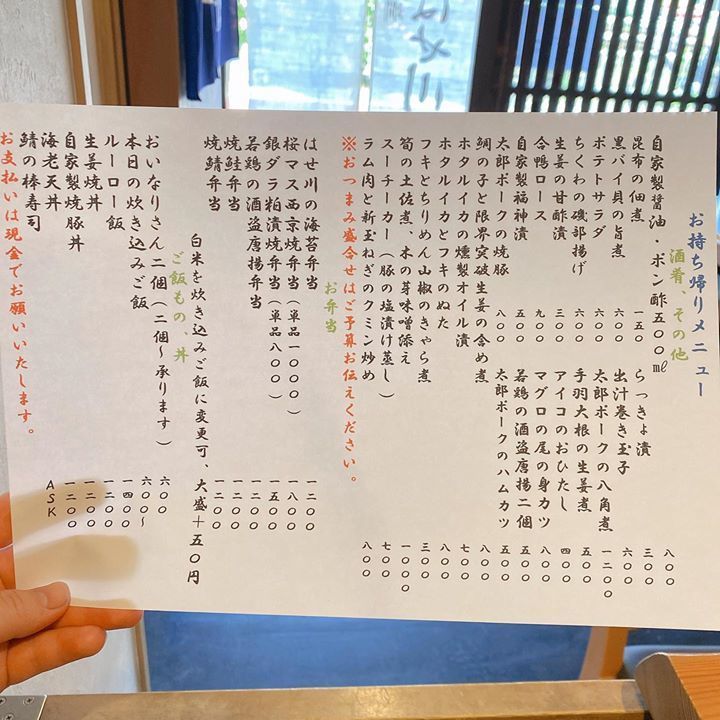 お持ち帰りメニュー
酒肴、その他
自家製醤油・ポン酢五〇〇㎖ 八〇〇
昆布の佃煮 一五〇 らっきょ漬 三〇〇
黒バイ貝の旨煮 六〇〇 出汁巻き玉子 六〇〇
ポテトサラダ 六〇〇 太郎ポークの八角煮 一二〇〇
ちくわの磯部揚げ 六〇〇 手羽大根の生姜煮 五〇〇
生姜の甘酢漬 三〇〇 アイコのおひたし 四〇〇
合鴨ロース 九〇〇 マグロの尾の身カツ 八〇〇
自家製福神漬 五〇〇 若鶏の酒盗唐揚二個 五〇〇
太郎ポークの焼豚 八〇〇 太郎ポークのハムカツ 五〇〇
鯛の子と限界突破生姜の含め煮 八〇〇
ホタルイカの燻製オイル漬 七〇〇
ホタルイカとフキのぬた 八〇〇
フキとちりめん山椒のきゃら煮 三〇〇
筍の土佐煮、木の芽味噌添え 一〇〇〇
スーチーカー（豚の塩漬け蒸し） 七〇〇
ラム肉と新玉ねぎのクミン炒め 八〇〇
※おつまみ盛合せはご予算お伝えください。
お弁当
はせ川の海苔弁当 一二〇〇
桜マス西京焼弁当（単品一〇〇〇） 一八〇〇
銀ダラ粕漬焼弁当（単品八〇〇） 一五〇〇
若鶏の酒盗唐揚弁当 一二〇〇
焼鮭弁当 一二〇〇
焼鯖弁当 一二〇〇
白米を炊き込みご飯に変更可、大盛＋五〇円
ご飯もの、丼
おいなりさん二個（二個〜承ります） 六〇〇
本日の炊き込みご飯 六〇〇〜
ルーロー飯 一四〇〇
生姜焼丼 一二〇〇
自家製焼豚丼 一二〇〇
海老天丼 一二〇〇
鯖の棒寿司 ASK
お支払いは現金でお願いいたします。